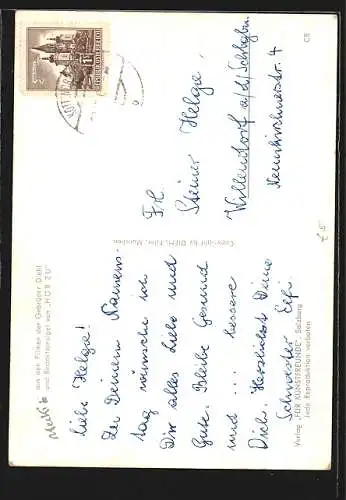 aus den Filmen der Gebrüder Diehl
und Redaktionsigel von „HÖR ZU"
liebe Helga!
Zu Deinem Namens-
tag wünsche ich
Dir alles Liebe und
Gute. Bleibe Gesund
und ... bessere
Dich. Herzlichst Deine
Schwester Elfi.
Verlag „FÜR KUNSTFREUNDE", Salzburg
Jede Reproduktion verboten
Copyright by DIEHL-Film, München
Frl.
Steiner Helga
Willendorf a/d/Schbgbn.
Neunkirchnerstr. 4
CB